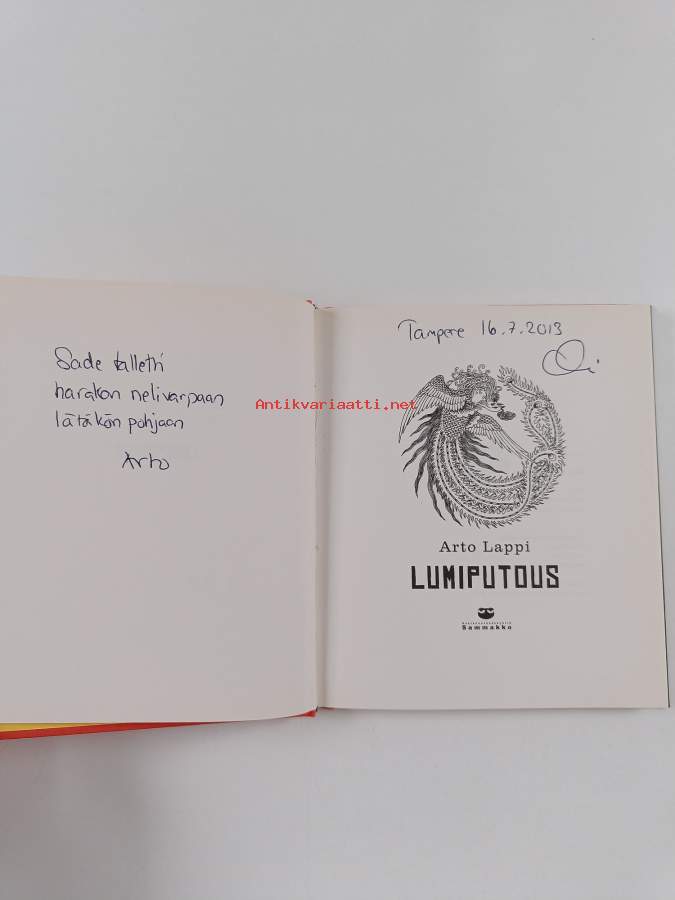 Sade talletti
harakan nelivarpaan
lätäkön pohjaan
Arto
Tampere 16.7.2013
Antikvariaatti.net
Arto Lappi
LUMIPUTOUS
Sammakko